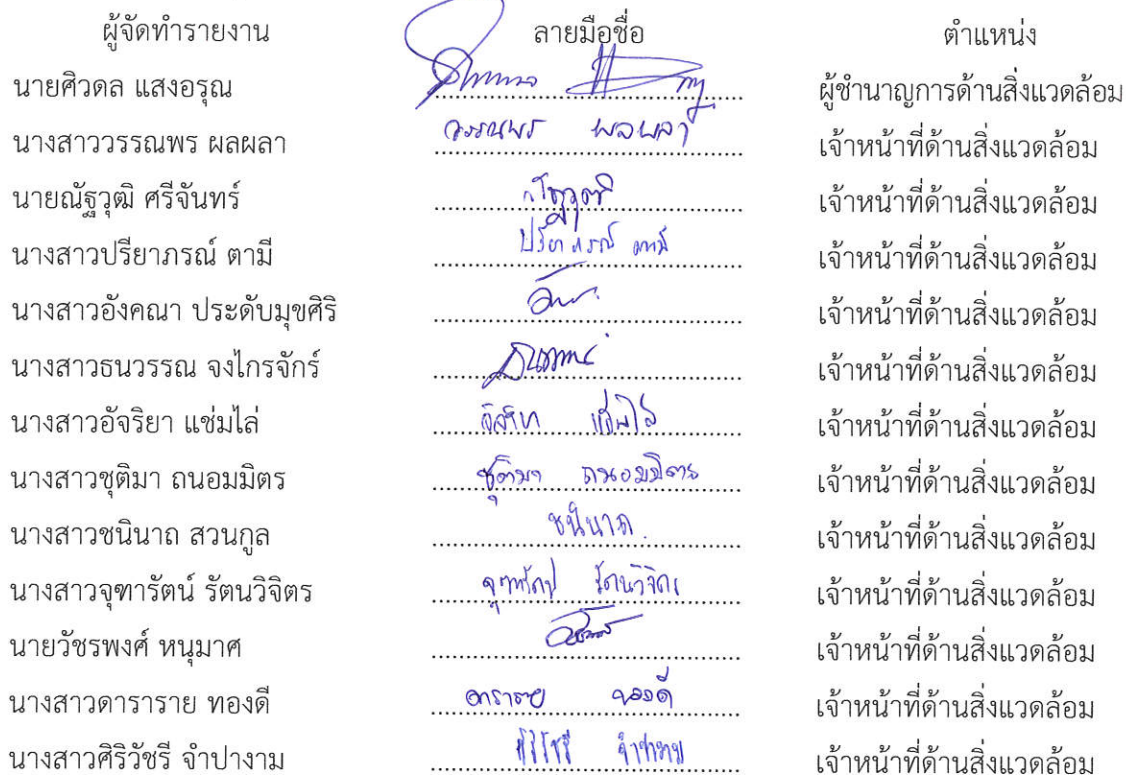 ผู้จัดทำรายงาน ลายมือชื่อ ตำแหน่ง
นายศิวดล แสงอรุณ ผู้ชำนาญการด้านสิ่งแวดล้อม
นางสาววรรณพร ผลผลา วรรณพร ผลผลา เจ้าหน้าที่ด้านสิ่งแวดล้อม
นายณัฐวุฒิ ศรีจันทร์ ณัฐวุฒิ เจ้าหน้าที่ด้านสิ่งแวดล้อม
นางสาวปรียาภรณ์ ตามี ปรียาภรณ์ ตามี เจ้าหน้าที่ด้านสิ่งแวดล้อม
นางสาวอังคณา ประดับมุขศิริ เจ้าหน้าที่ด้านสิ่งแวดล้อม
นางสาวธนวรรณ จงไกรจักร์ เจ้าหน้าที่ด้านสิ่งแวดล้อม
นางสาวอัจริยา แช่มไล่ อัจริยา แช่มไล่ เจ้าหน้าที่ด้านสิ่งแวดล้อม
นางสาวชุติมา ถนอมมิตร ชุติมา ถนอมมิตร เจ้าหน้าที่ด้านสิ่งแวดล้อม
นางสาวชนินาถ สวนกูล ชนินาถ เจ้าหน้าที่ด้านสิ่งแวดล้อม
นางสาวจุฑารัตน์ รัตนวิจิตร จุฑารัตน์ รัตนวิจิตร เจ้าหน้าที่ด้านสิ่งแวดล้อม
นายวัชรพงศ์ หนุมาศ เจ้าหน้าที่ด้านสิ่งแวดล้อม
นางสาวดาราราย ทองดี ดาราราย ทองดี เจ้าหน้าที่ด้านสิ่งแวดล้อม
นางสาวศิริวัชรี จำปางาม ศิริวัชรี จำปางาม เจ้าหน้าที่ด้านสิ่งแวดล้อม